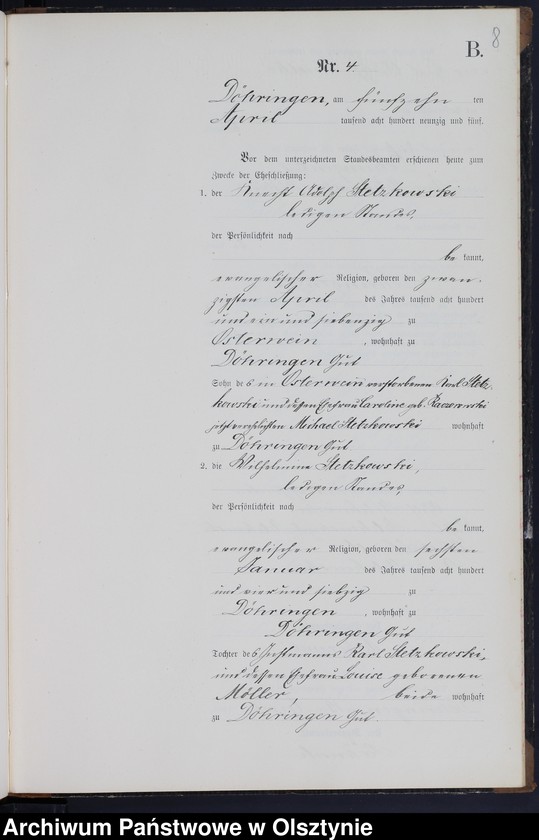 8
B.
Nr. 4.
Döhringen, am fünfzehn ten
April tausend acht hundert neunzig und fünf.
Vor dem unterzeichneten Standesbeamten erschienen heute zum
Zwecke der Eheschließung:
1. der Knecht Adolph Stetzkowski
ledigen Standes,
der Persönlichkeit nach
be kannt,
evangelischer Religion, geboren den zwan-
zigsten April des Jahres tausend acht hundert
und ein und siebenzig zu
Osterwein, wohnhaft zu
Döhringen Gut
Sohn des in Osterwein verstorbenen Karl Stetz-
kowski und dessen Ehefrau Caroline geb.
jetzt verehelichten Michael Stetzkowski wohnhaft
zu Döhringen Gut.
2. die Wilhelmine Stetzkowski,
ledigen Standes,
der Persönlichkeit nach
be kannt,
evangelischer Religion, geboren den sechsten
Januar des Jahres tausend acht hundert
und vier und siebzig zu
Döhringen, wohnhaft zu
Döhringen Gut
Tochter des Instmanns Karl Stetzkowski,
und dessen Ehefrau Louise geborenen
Möller, beide wohnhaft
zu Döhringen Gut.
Archiwum Państwowe w Olsztynie